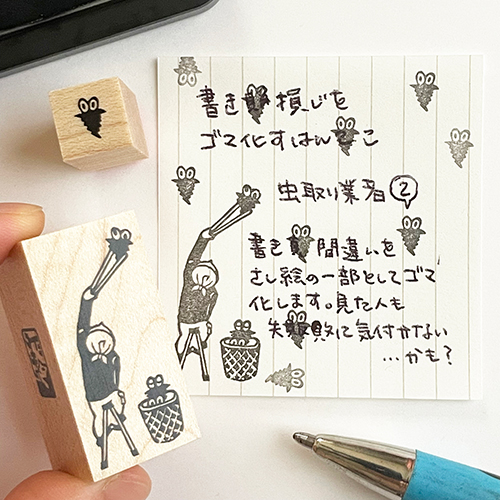 書き損じを
ゴマ化すはんこ
虫取り業者②
書き間違いを
さし絵の一部としてゴマ
化します。見た人も
失敗に気付かない
…かも？